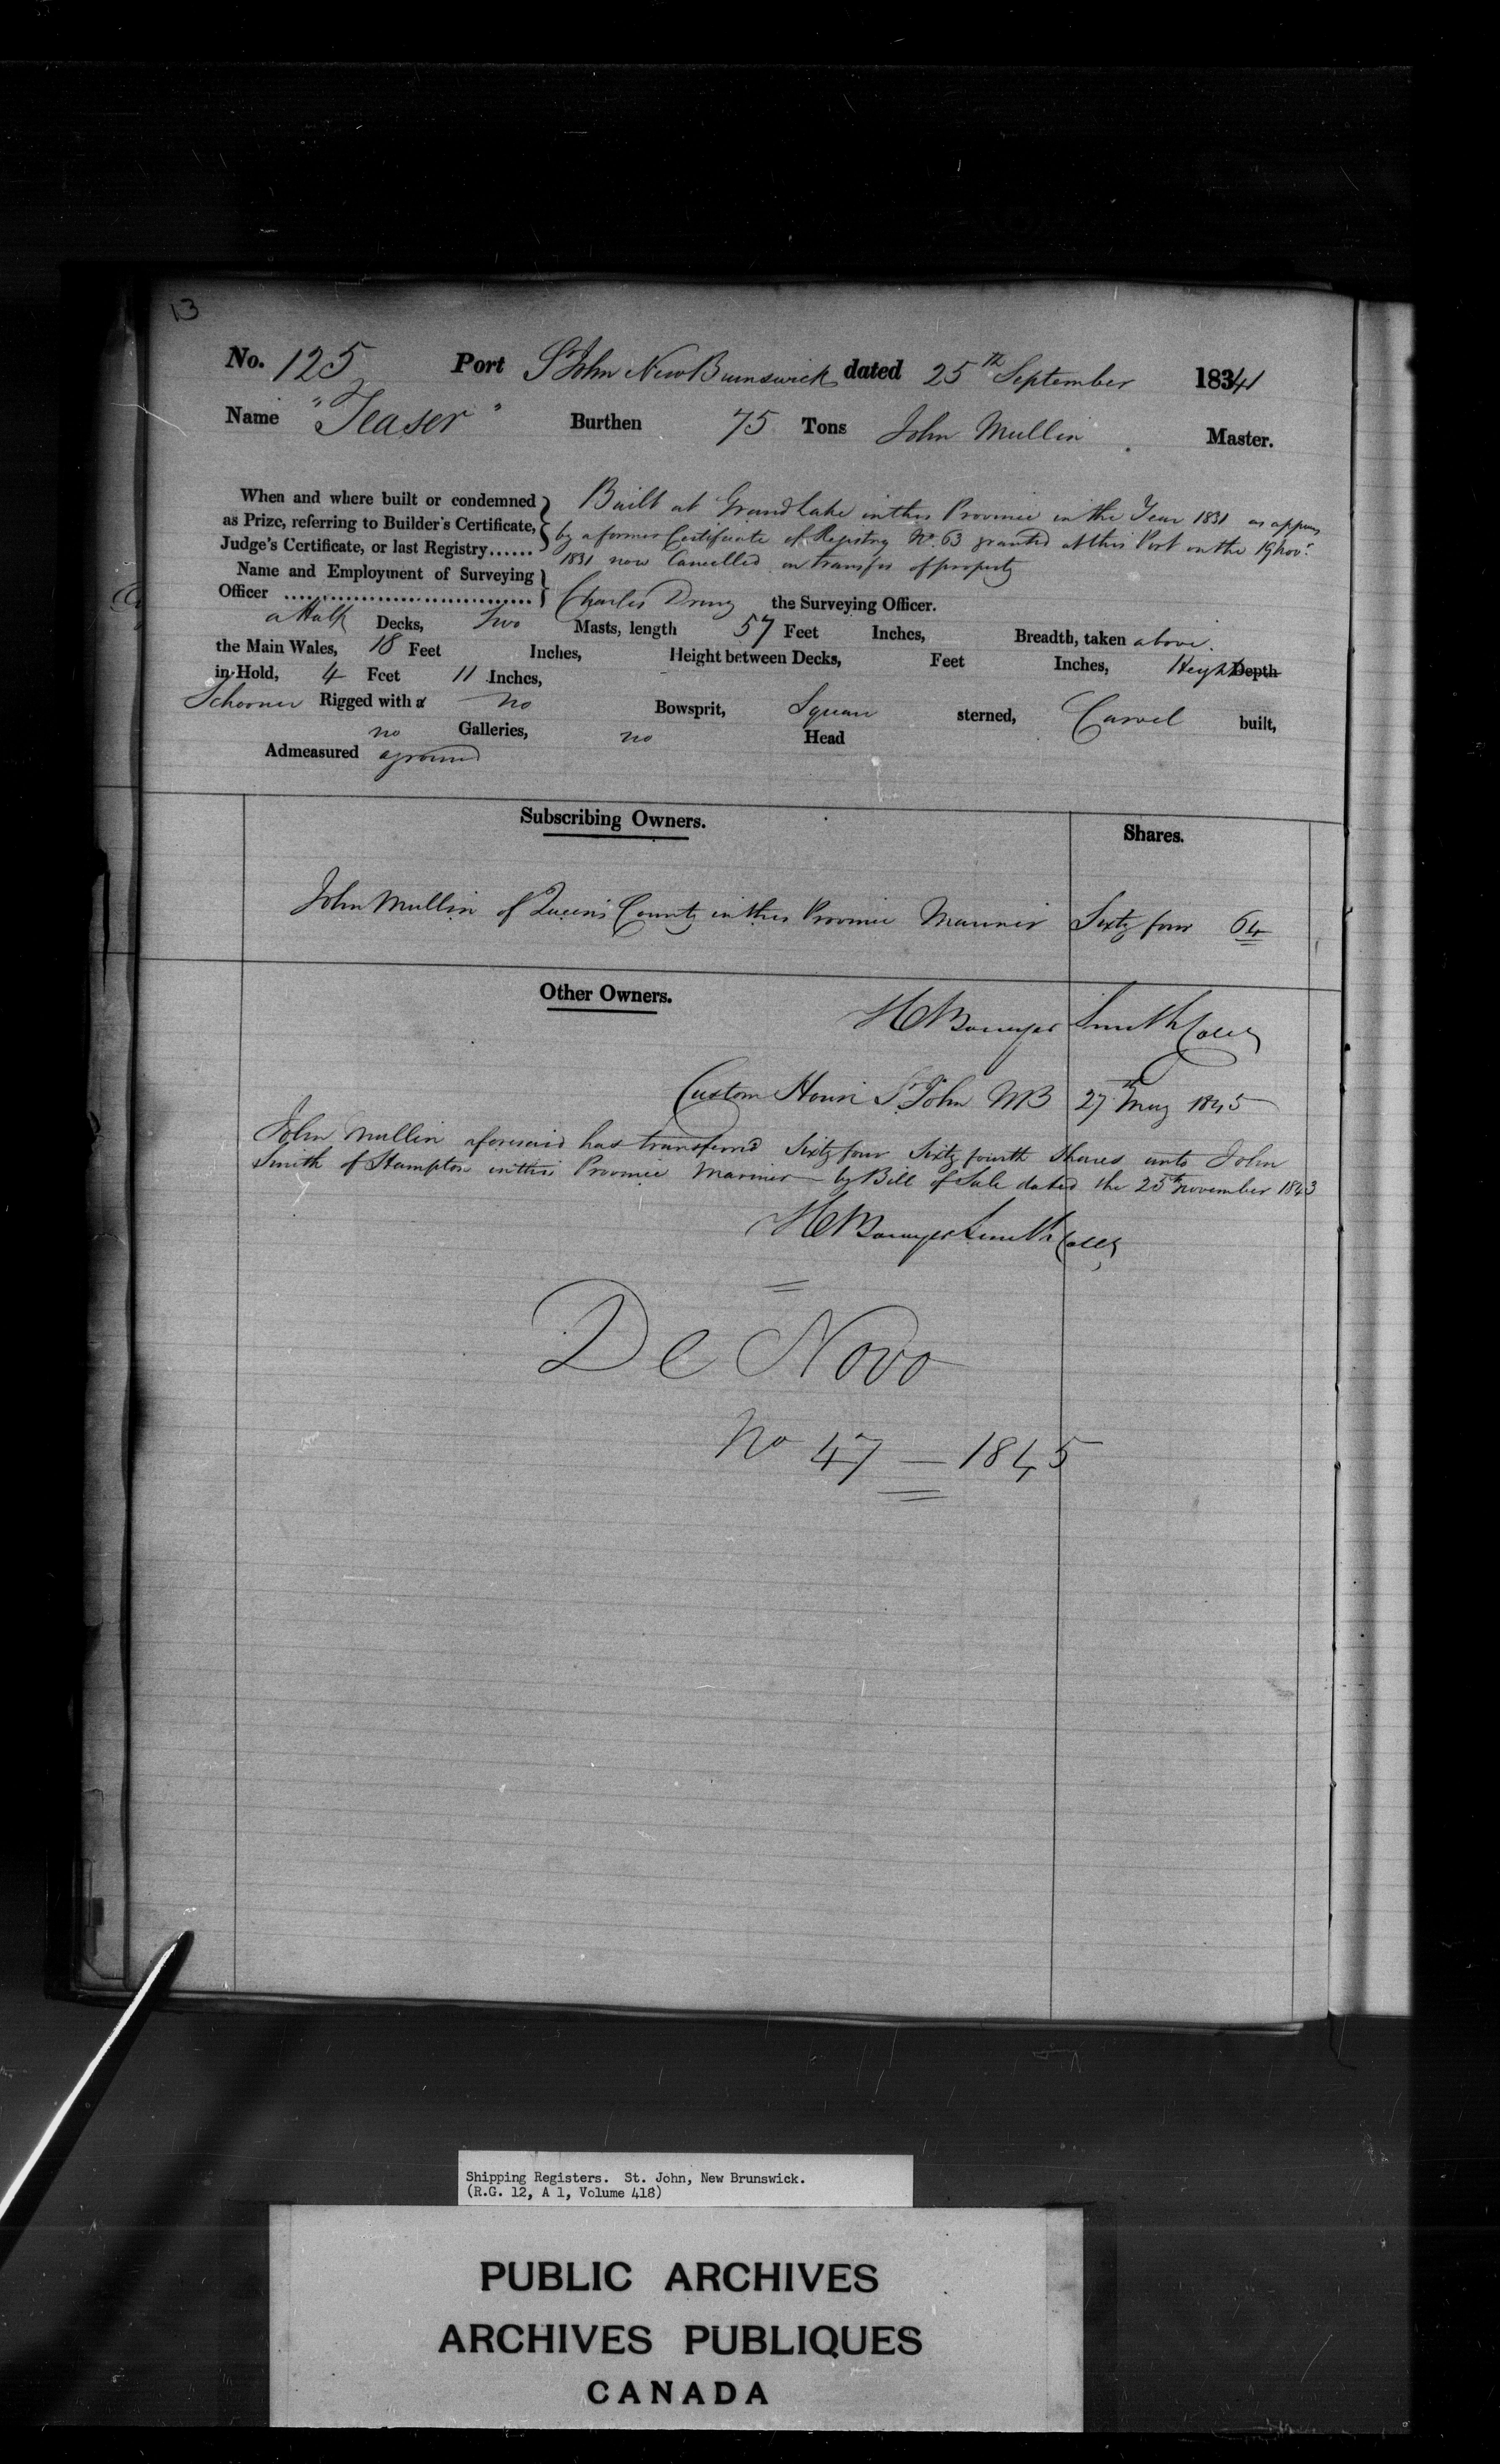 13
No. 125 Port St John New Brunswick dated 25th September 1841
Name "Teaser" Burthen 75 Tons John Mullin Master.
When and where built or condemned
as Prize, referring to Builder's Certificate,
Judge's Certificate, or last Registry......
Built at Grand Lake in this Province in the Year 1831 as appears
by a former Certificate of Registry No. 63 granted at this Port on the 19 Novr.
1831 now Cancelled on transfer of property
Name and Employment of Surveying
Officer .................................. Charles Drury the Surveying Officer.
a Half Decks, Two Masts, length 57 Feet Inches, Breadth, taken above
the Main Wales, 18 Feet Inches, Height between Decks, Feet Inches, Height Depth
in Hold, 4 Feet 11 Inches,
Schooner Rigged with a no Bowsprit, Square sterned, Carvel built,
no Galleries, no Head
Admeasured aground
Subscribing Owners. Shares.
John Mullin of Queen's County in this Province Mariner Sixty four 64
Other Owners.
H Bowyer Smith Collr
Custom House St John NB 27th May 1845
John Mullin aforesaid has transferred Sixty four Sixty fourth Shares unto John
Smith of Hampton in this Province Mariner by Bill of Sale dated the 25th November 1843
H Bowyer Smith Collr
De Novo
No 47 — 1845
Shipping Registers. St. John, New Brunswick.
(R.G. 12, A 1, Volume 418)
PUBLIC ARCHIVES
ARCHIVES PUBLIQUES
CANADA